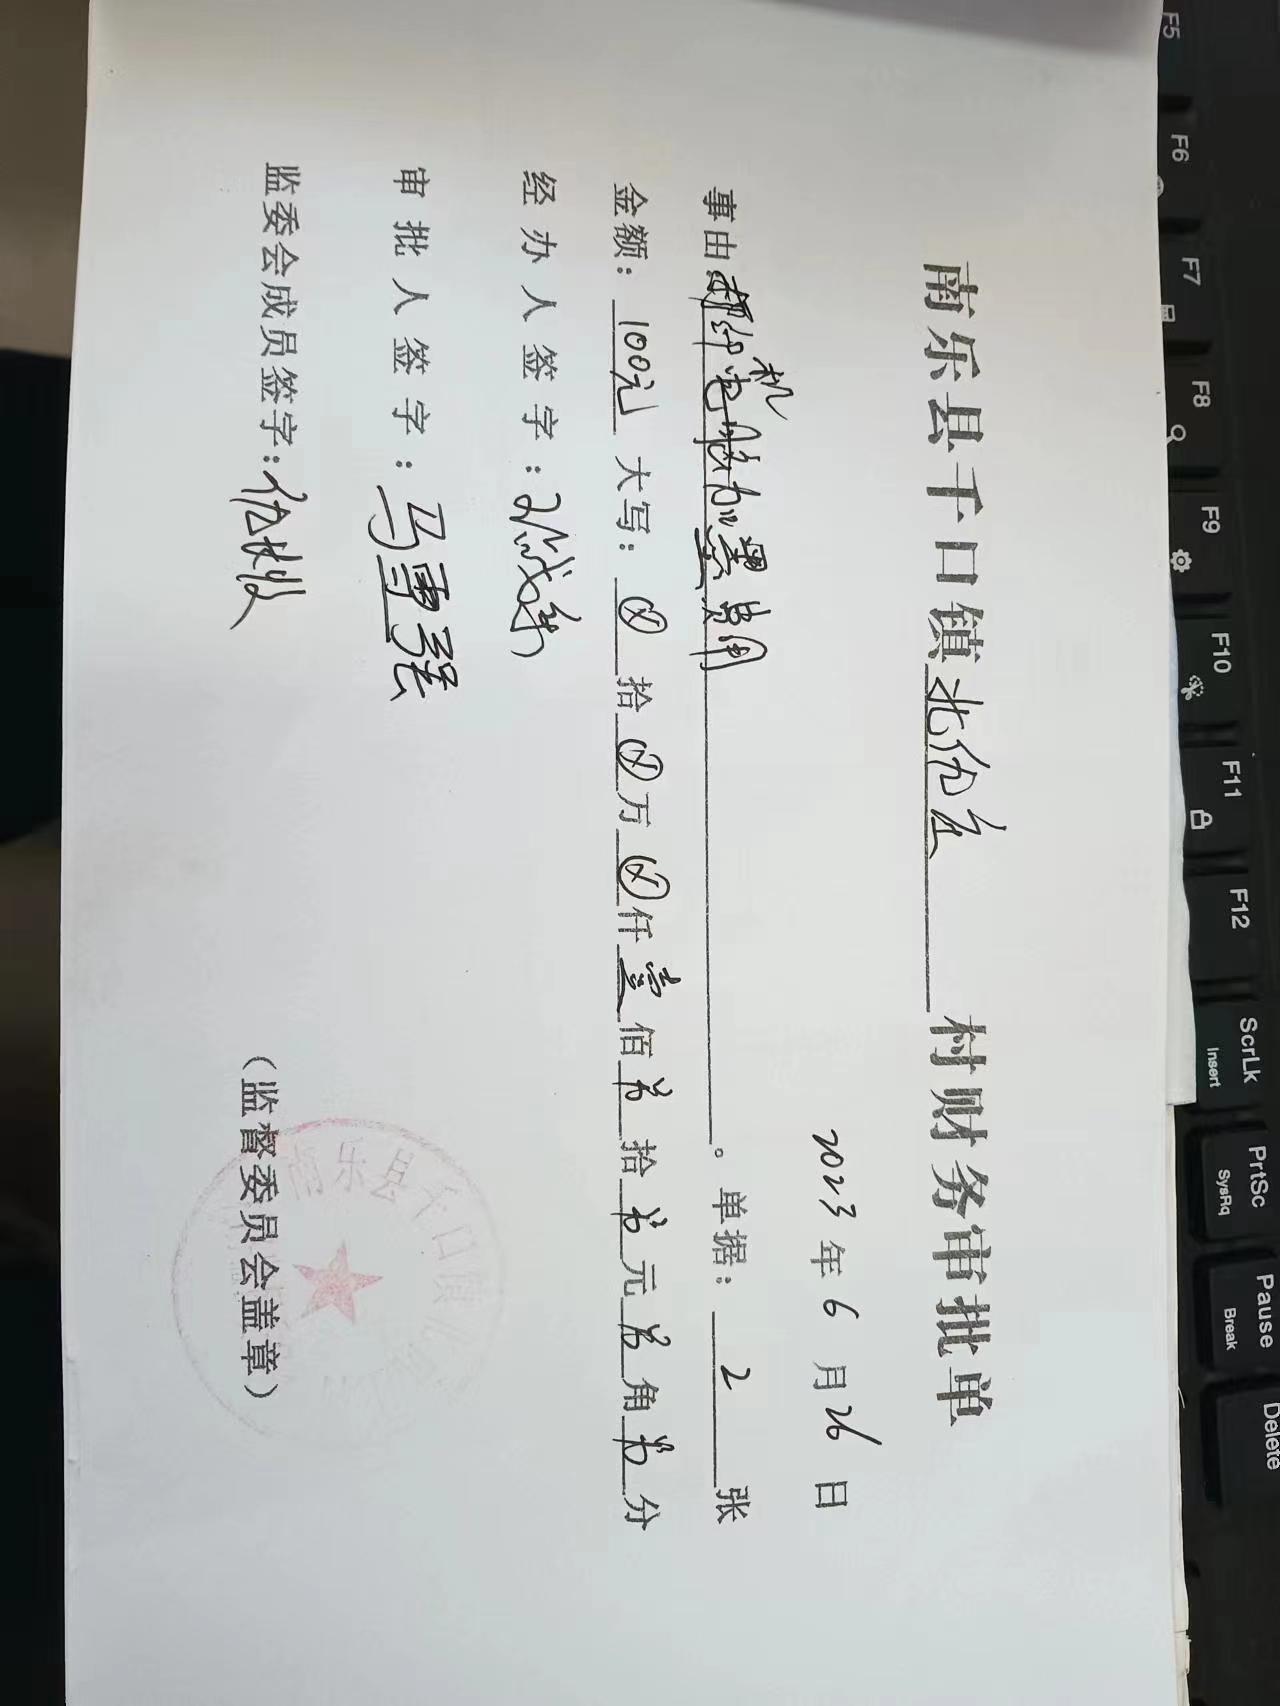 南乐县千口镇北伍庄村财务审批单
2023年6月26日
事由:打印机电脑加墨费用。单据:2张
金额:100元大写:⊗拾⊗万⊗仟壹佰零拾零元零角零分
经办人签字:
审批人签字:马雪强
监委会成员签字:
(监督委员会盖章)
南乐县千口镇
F5
F6
F7
F8
F9
F10
F11
F12
ScrLk
Insert
PrtSc
SysRq
Pause
Break
Delete